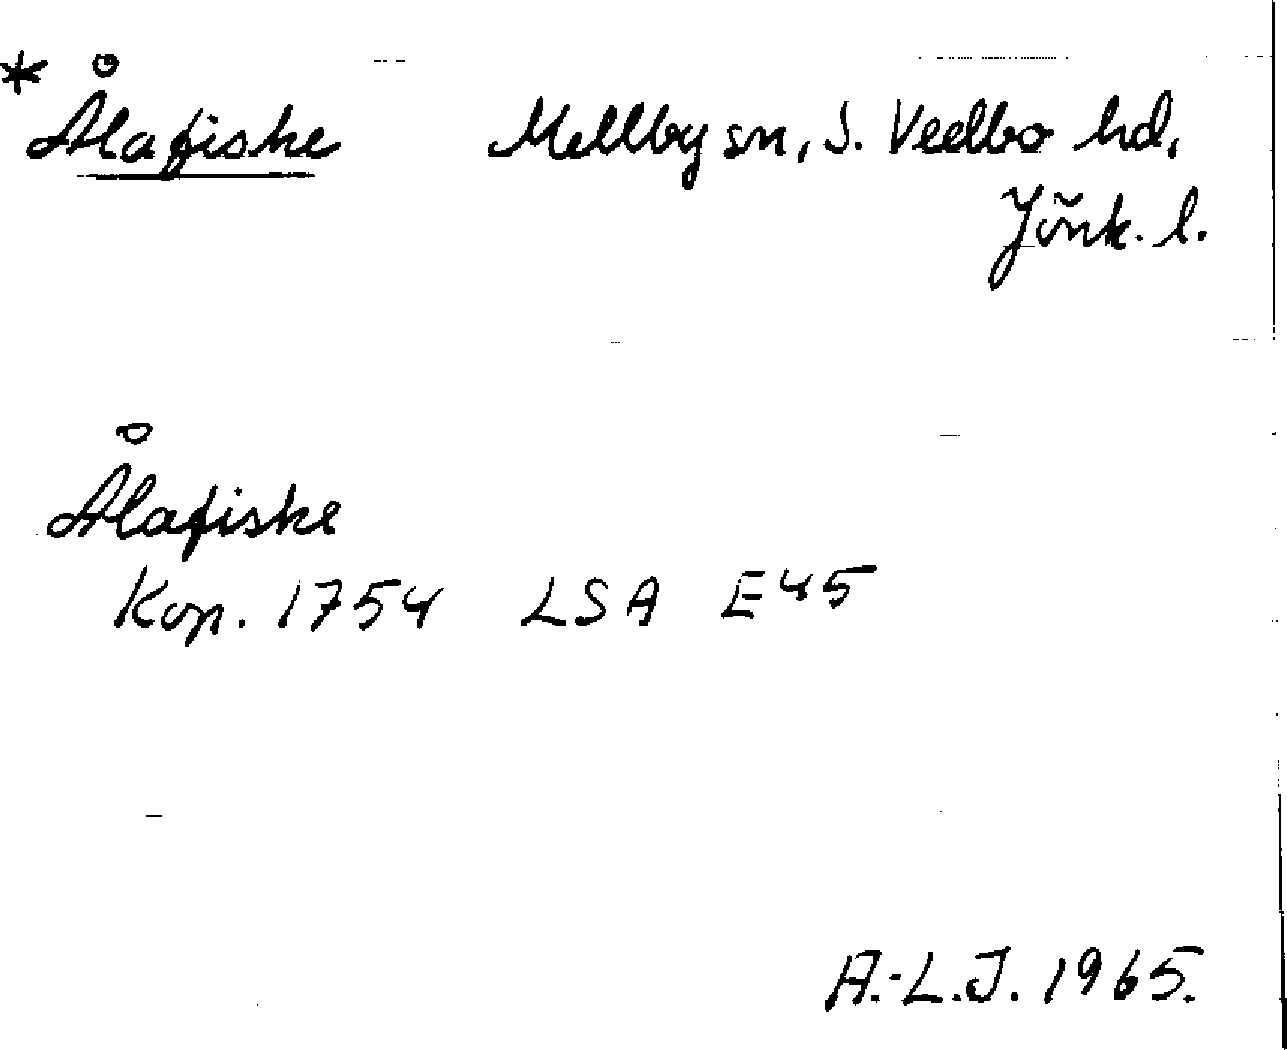 * Ålafiske Mellby sn, S. Vedbo hd,
Jönk. l.
Ålafiske
Kop. 1754 LSA E45
A.-L.J. 1965.